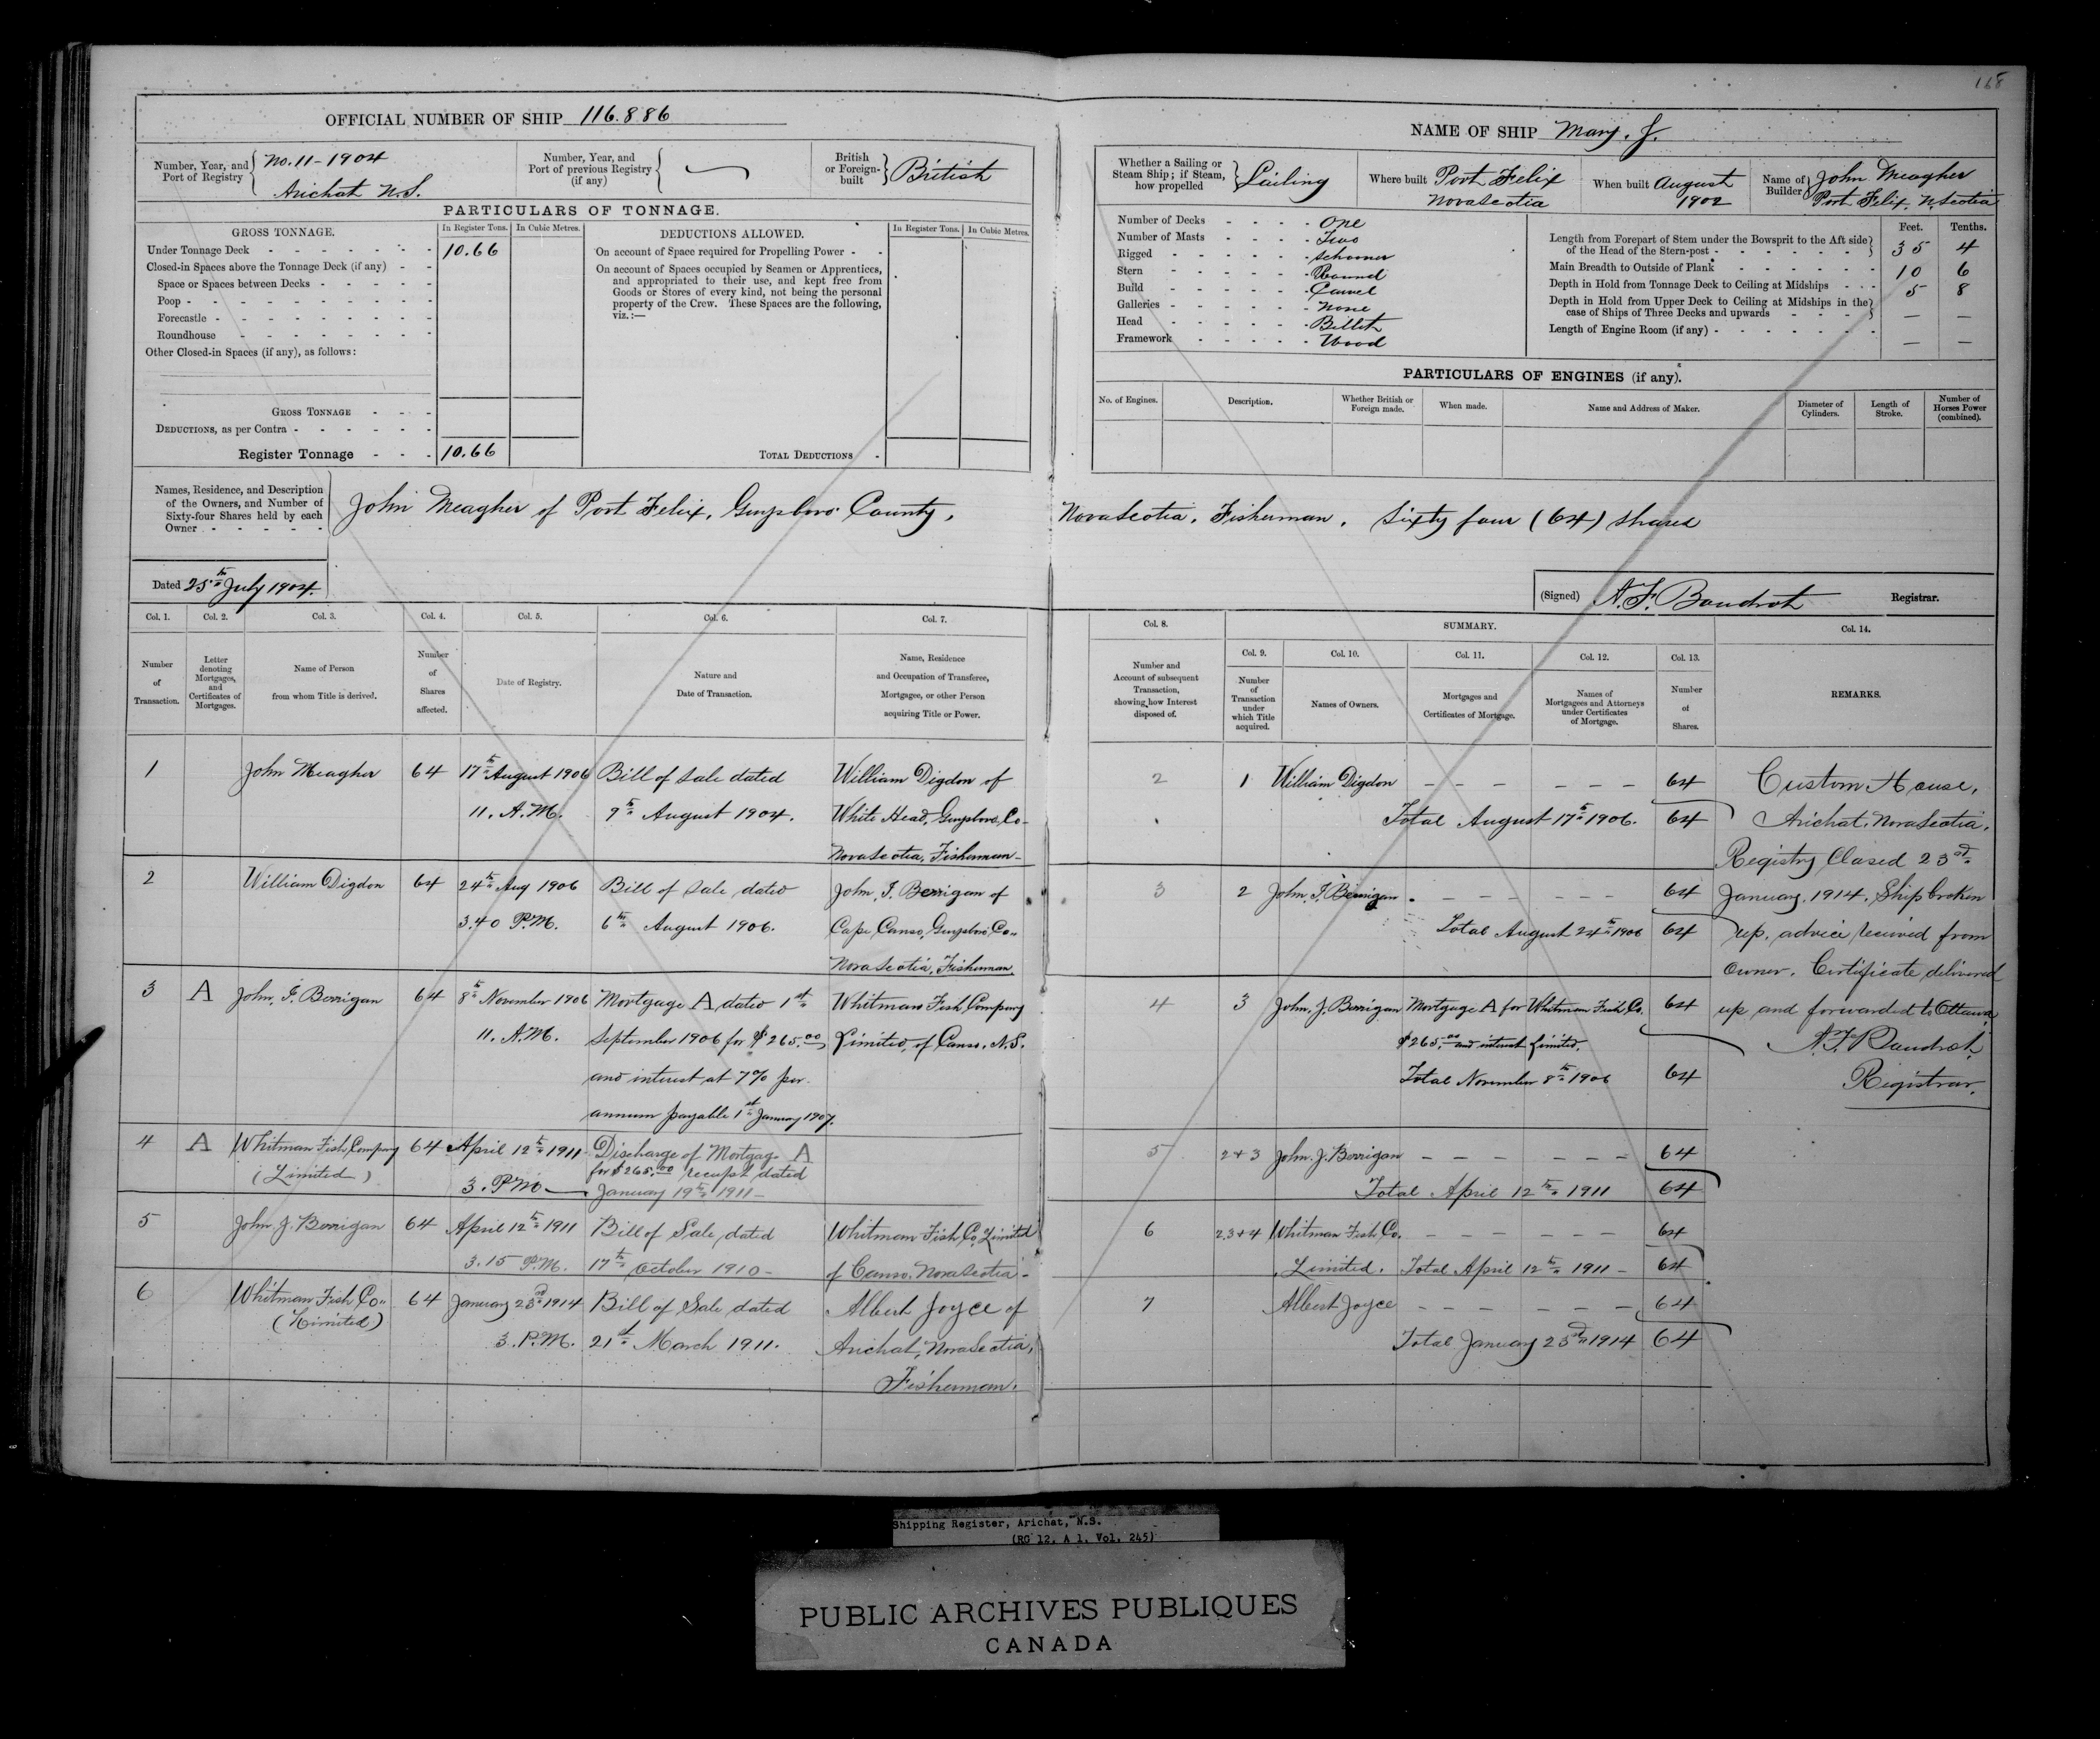 168
OFFICIAL NUMBER OF SHIP 116.886
Number, Year, and Port of Registry No. 11-1904 Arichat N.S.
Number, Year, and Port of previous Registry (if any)
British or Foreign-built British
PARTICULARS OF TONNAGE.
GROSS TONNAGE. In Register Tons. In Cubic Metres. DEDUCTIONS ALLOWED. In Register Tons. In Cubic Metres.
Under Tonnage Deck 10.66
Closed-in Spaces above the Tonnage Deck (if any)
Space or Spaces between Decks
Poop
Forecastle
Roundhouse
Other Closed-in Spaces (if any), as follows:
GROSS TONNAGE
DEDUCTIONS, as per Contra
Register Tonnage 10.66
On account of Space required for Propelling Power
On account of Spaces occupied by Seamen or Apprentices,
and appropriated to their use, and kept free from
Goods or Stores of every kind, not being the personal
property of the Crew. These Spaces are the following,
viz.:—
TOTAL DEDUCTIONS
NAME OF SHIP Mary. J.
Whether a Sailing or Steam Ship; if Steam, how propelled Sailing
Where built Port Felix Nova Scotia
When built August 1902
Name of Builder John Meagher Port Felix, N. Scotia
Number of Decks One
Number of Masts Two
Rigged Schooner
Stern Round
Build Carvel
Galleries None
Head Billet
Framework Wood
Feet. Tenths.
Length from Forepart of Stem under the Bowsprit to the Aft side of the Head of the Stern-post 35 4
Main Breadth to Outside of Plank 10 6
Depth in Hold from Tonnage Deck to Ceiling at Midships 5 8
Depth in Hold from Upper Deck to Ceiling at Midships in the case of Ships of Three Decks and upwards — —
Length of Engine Room (if any) — —
PARTICULARS OF ENGINES (if any).
No. of Engines. Description. Whether British or Foreign made. When made. Name and Address of Maker. Diameter of Cylinders. Length of Stroke. Number of Horses Power (combined).
Names, Residence, and Description of the Owners, and Number of Sixty-four Shares held by each Owner
John Meagher of Port Felix, Guysboro County, Nova Scotia, Fisherman, Sixty four (64) shares
Dated 25th July 1904.
(Signed) A. F. Boudrot Registrar.
Col. 1. Col. 2. Col. 3. Col. 4. Col. 5. Col. 6. Col. 7. Col. 8. SUMMARY. Col. 14.
Col. 9. Col. 10. Col. 11. Col. 12. Col. 13.
Number of Transaction.
Letter denoting Mortgages, and Certificates of Mortgages.
Name of Person from whom Title is derived.
Number of Shares affected.
Date of Registry.
Nature and Date of Transaction.
Name, Residence and Occupation of Transferee, Mortgagee, or other Person acquiring Title or Power.
Number and Account of subsequent Transaction, showing how Interest disposed of.
Number of Transaction under which Title acquired.
Names of Owners.
Mortgages and Certificates of Mortgage.
Names of Mortgagees and Attorneys under Certificates of Mortgage.
Number of Shares.
REMARKS.
1 John Meagher 64 17th August 1906 Bill of Sale dated William Digdon of
11. A.M. 9th August 1904. White Head, Guysboro Co
Nova Scotia, Fisherman
2 William Digdon 64 24th Aug 1906 Bill of Sale dated John, J. Berrigan of
3.40 P.M. 6th August 1906. Cape Canso, Guysboro Co
Nova Scotia, Fisherman.
3 A John, J. Berrigan 64 8th November 1906 Mortgage A dated 1st Whitman Fish Company
11. A.M. September 1906 for $265.00 Limited, of Canso, N.S.
and interest at 7% per
annum payable 1st January 1907.
4 A Whitman Fish Company 64 April 12th 1911 Discharge of Mortgag A
(Limited) for $265.00 receipt dated
3. P.M. January 19th 1911
5 John J. Berrigan 64 April 12th 1911 Bill of Sale dated Whitman Fish Co. Limited
3.15 P.M. 17th October 1910 of Canso, Nova Scotia
6 Whitman Fish Co 64 January 23rd 1914 Bill of Sale dated Albert Joyce of
(Limited) 3. P.M. 21st March 1911. Arichat, Nova Scotia,
Fisherman.
2 1 William Digdon 64
Total August 17th 1906. 64
3 2 John, J. Berrigan 64
Total August 24th 1906 64
4 3 John, J. Berrigan Mortgage A for Whitman Fish Co. 64
$265.00 and interest Limited.
Total November 8th 1906 64
5 2+3 John. J. Berrigan 64
Total April 12th 1911 64
6 2.3+4 Whitman Fish Co. 64
Limited. Total April 12th 1911 64
7 Albert Joyce 64
Total January 23rd 1914 64
Custom House,
Arichat, Nova Scotia,
Registry Closed 23rd
January, 1914, Ship broken
up, advice received from
owner. Certificate delivered
up and forwarded to Ottawa
A. F. Boudrot,
Registrar.
Shipping Register, Arichat, N.S.
(RG 12, A 1, Vol. 245)
PUBLIC ARCHIVES PUBLIQUES
CANADA